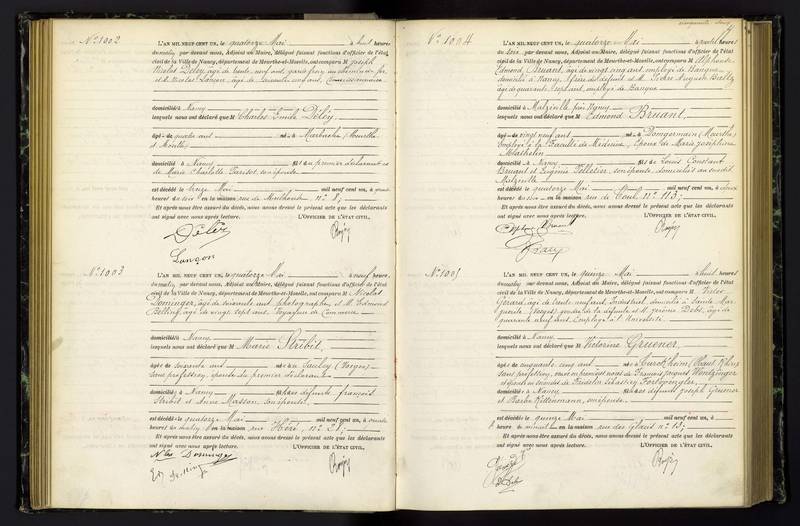 N° 1002
L'AN MIL NEUF CENT UN, le quatorze Mai à huit heures
du matin, par devant nous, Adjoint au Maire, délégué faisant fonctions d'officier de l'état
civil de la Ville de Nancy, département de Meurthe-et-Moselle, ont comparu M Joseph
Nicolas Déléy, âgé de trente neuf ans, garde frein au chemin de fer
et M. Nicolas Lançon, âgé de soixante ans, Commissionnaire
domiciliés à Nancy
lesquels nous ont déclaré que M Charles Emile Déléy
âgé de quatre ans né à Marbache (Meurthe
et Moselle)
domicilié à Nancy fils du premier déclarant et
de Marie Charlotte Parisot, son épouse
est décédé le treize Mai mil neuf cent un, à
heures du soir en la maison rue de Mulhouse, n° 8;
Et après nous être assuré du décès, nous avons dressé le présent acte que les déclarants
ont signé avec nous après lecture. L'OFFICIER DE L'ÉTAT CIVIL.
Déléy
Lançon
N° 1003
L'AN MIL NEUF CENT UN, le quatorze Mai à neuf heures
du matin, par devant nous, Adjoint au Maire, délégué faisant fonctions d'officier de l'état
civil de la Ville de Nancy, département de Meurthe-et-Moselle, ont comparu M Nicolas
Dominger, âgé de soixante ans, photographe, et M. Edmond
âgé de vingt sept ans, Voyageur de Commerce
domiciliés à Nancy
lesquels nous ont déclaré que M Marie Stribit
âgée de soixante ans née à (Vosges)
Sans profession, épouse du premier déclarant
domiciliée à Nancy fille des défunts François
Stribit et Anne Masson, son épouse
est décédée le quatorze Mai mil neuf cent un, à
heures du matin en la maison rue Héré, n° 21;
Et après nous être assuré du décès, nous avons dressé le présent acte que les déclarants
ont signé avec nous après lecture. L'OFFICIER DE L'ÉTAT CIVIL.
Nlas Dominger
N° 1004
L'AN MIL NEUF CENT UN, le quatorze Mai à quatre heures
du soir, par devant nous, Adjoint au Maire, délégué faisant fonctions d'officier de l'état
civil de la Ville de Nancy, département de Meurthe-et-Moselle, ont comparu M Alphonse
Edmond Bruant, âgé de vingt cinq ans, employé de Banque
domicilié à Nancy, frère du défunt et M. Auguste
âgé de quarante sept ans, employé de Banque
domicilié à Malzéville
lesquels nous ont déclaré que M Edmond Bruant
âgé de vingt neuf ans né à Domgermain (Meurthe)
Employé à la Faculté de Médecine, Epoux de Marie Joséphine
Mathelin
domicilié à Nancy fils de Louis Constant
Bruant et Eugénie Pelletier, son épouse, domiciliés au susdit
Malzéville
est décédé le quatorze Mai mil neuf cent un, à
heures du soir en la maison rue de Toul, n° 113;
Et après nous être assuré du décès, nous avons dressé le présent acte que les déclarants
ont signé avec nous après lecture. L'OFFICIER DE L'ÉTAT CIVIL.
Alphonse Bruant
N° 1005
L'AN MIL NEUF CENT UN, le quinze Mai à huit heures
du matin, par devant nous, Adjoint au Maire, délégué faisant fonctions d'officier de l'état
civil de la Ville de Nancy, département de Meurthe-et-Moselle, ont comparu M Victor
Gérard, âgé de trente neuf ans, Industriel, domicilié à Sainte Mar-
guerite (Vosges), gendre de la défunte et M. Jérôme Debs, âgé de
quarante neuf ans, Employé à l'Université
domicilié à Nancy
lesquels nous ont déclaré que M Victorine Gruener
âgée de cinquante cinq ans née à Turckheim (Haut Rhin)
Sans profession, veuve en premières noces de François Jacques
et épouse en secondes de Sébastien
domiciliée à Nancy fille des défunts Joseph Gruener
et Barbe son épouse
est décédée le quinze Mai mil neuf cent un, à
heure du en la maison rue des Glacis n° 13;
Et après nous être assuré du décès, nous avons dressé le présent acte que les déclarants
ont signé avec nous après lecture. L'OFFICIER DE L'ÉTAT CIVIL.